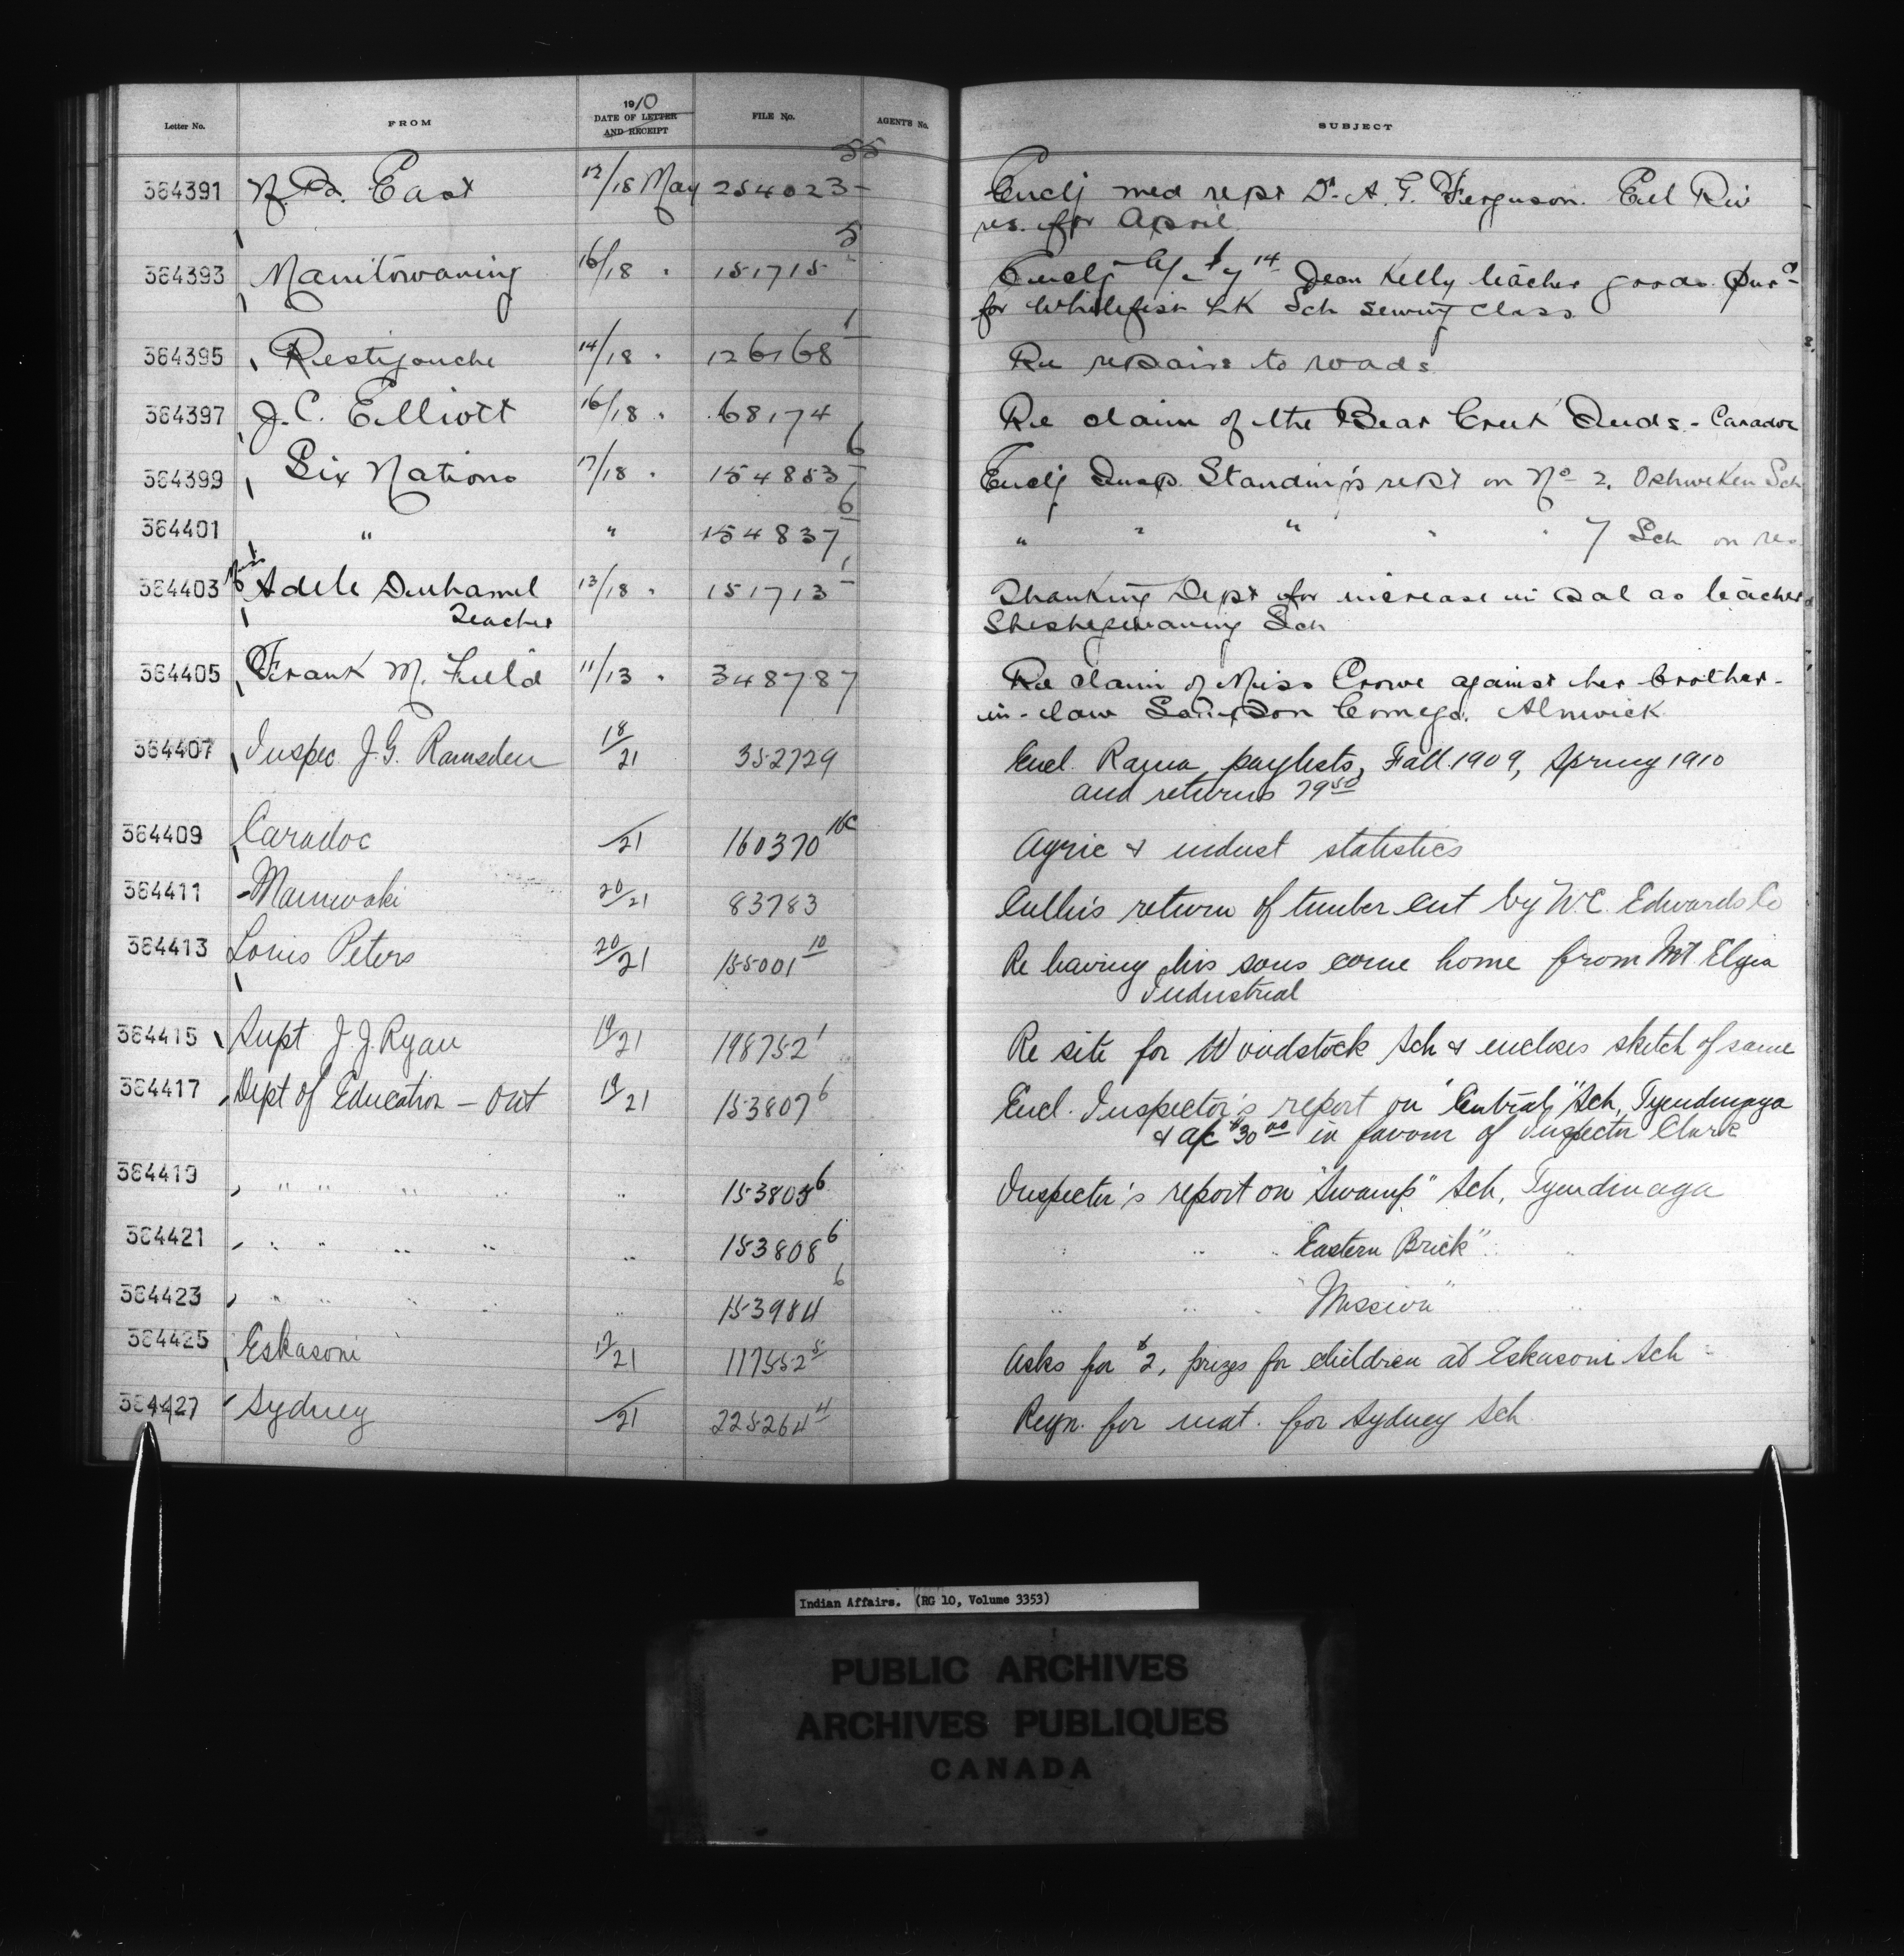 Letter No. FROM 1910 DATE OF LETTER AND RECEIPT FILE No. AGENT'S No. SUBJECT
364391 N. Da. East 12/18 May 254023-55 Enclg med rept Dr. A. G. Ferguson. Eel Riv
res. for April
364393 Manitowaning 16/18 " 151715-5 Enclg a/c $7.14 Jean Kelly teacher goods purd
for Whitefish LK Sch sewing class
364395 Restigouche 14/18 " 126168-1 Re repairs to roads
364397 J. C. Elliott 16/18 " 68174 Re claim of the Bear Creek Inds - Caradoc
364399 Six Nations 17/18 " 154853-6 Enclg Insp. Standing's rept on No 2. Oshweken Sch
364401 " " 154837-6 " " " " 7 Sch on res
364403 Miss Adele Duhamel 13/18 " 151713-1 Thanking Dept for increase in sal as teacher
Teacher Sheshegwaning Sch
364405 Frank M. Field 11/13 " 348787 Re claim of Miss Crowe against her brother-
in-law Sampson Comego. Alnwick
364407 Inspec. J. G. Ramsden 18/21 352729 Encl. Rama paylists, Fall 1909, Spring 1910
and returns 79.50
364409 Caradoc /21 160370 16c Agric & indust statistics
364411 Maniwaki 20/21 83783 Culler's return of timber cut by W.C. Edwards Co
364413 Louis Peters 20/21 155001 10 Re having his sons come home from Mt Elgin
Industrial
364415 Supt J. J. Ryan 19/21 198752 1 Re site for Woodstock Sch & encloses sketch of same
364417 Dept of Education - Ont 19/21 153807 6 Encl. Inspector's report on "Central" Sch, Tyendinaga
& a/c $30.00 in favour of Inspector Clark
364419 " " " " " 153805 6 Inspector's report on "Swamp" Sch, Tyendinaga
364421 " " " " " 153808 6 " " " Eastern Brick" " "
364423 " " " " " 153984 6 " " " "Mission" " "
364425 Eskasoni 17/21 117552 5 Asks for $2, prizes for children at Eskasoni Sch
364427 Sydney /21 225264 4 Reqn. for mat. for Sydney Sch
Indian Affairs. (RG 10, Volume 3353)
PUBLIC ARCHIVES
ARCHIVES PUBLIQUES
CANADA